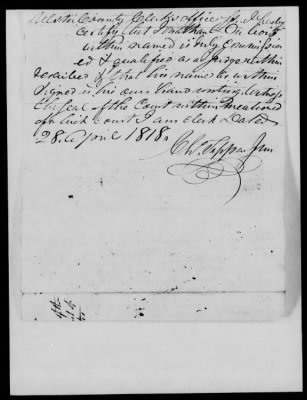 Ulster County Clerks office Jr. I hereby
Certify that Jonathan
within named is duly Commission
ed & qualified as a Judge within
described & that his name as within
signed is his own hand writing, & also
the seal of the Court within mentioned
of which Court I am Clerk Dated
28. April 1818.
Ch. Tappen Jun